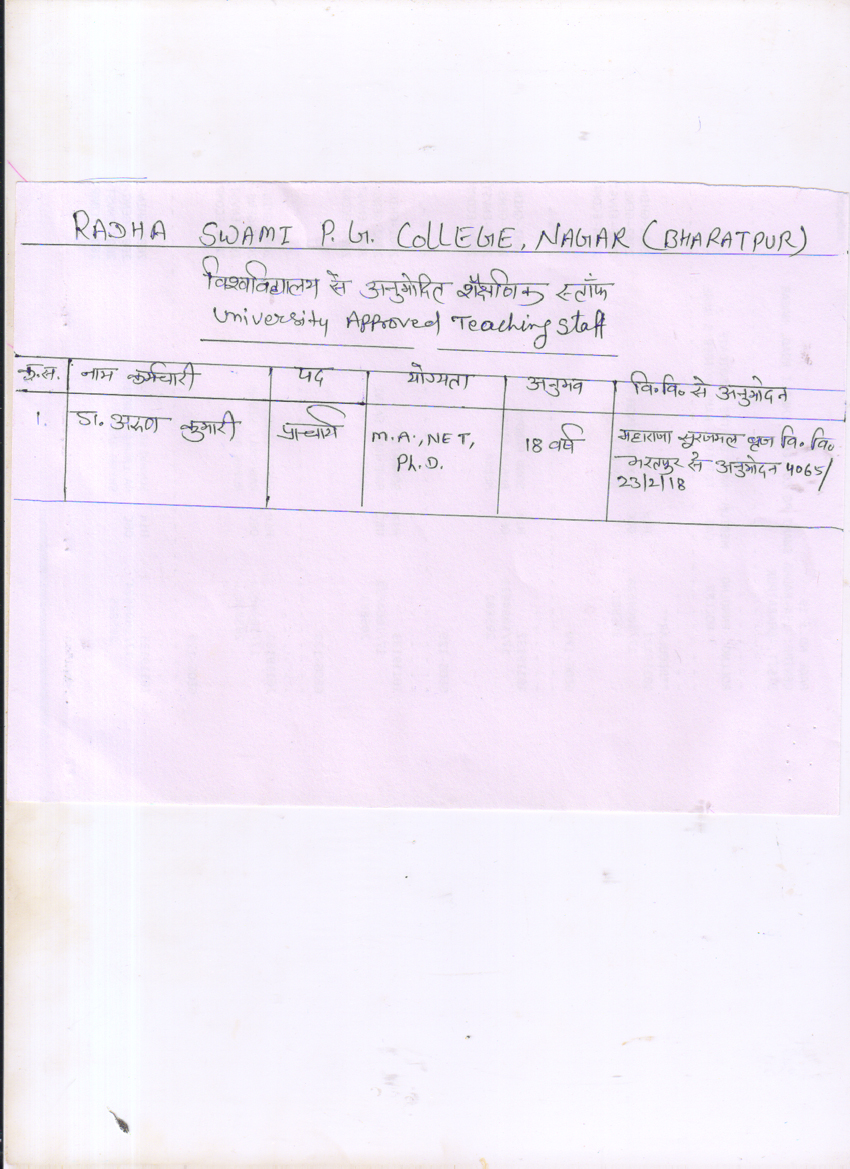 RADHA SWAMI P.G. COLLEGE, NAGAR (BHARATPUR)
विश्वविद्यालय से अनुमोदित शैक्षणिक स्टॉफ
University Approved Teaching Staff
क्र.स. नाम कर्मचारी पद योग्यता अनुभव वि०वि० से अनुमोदन
1. डा. अरुण कुमारी प्राचार्य M.A., NET, 18 वर्ष महाराजा सूरजमल बृज वि० वि०
Ph.D. भरतपुर से अनुमोदन 4065/
23/2/18